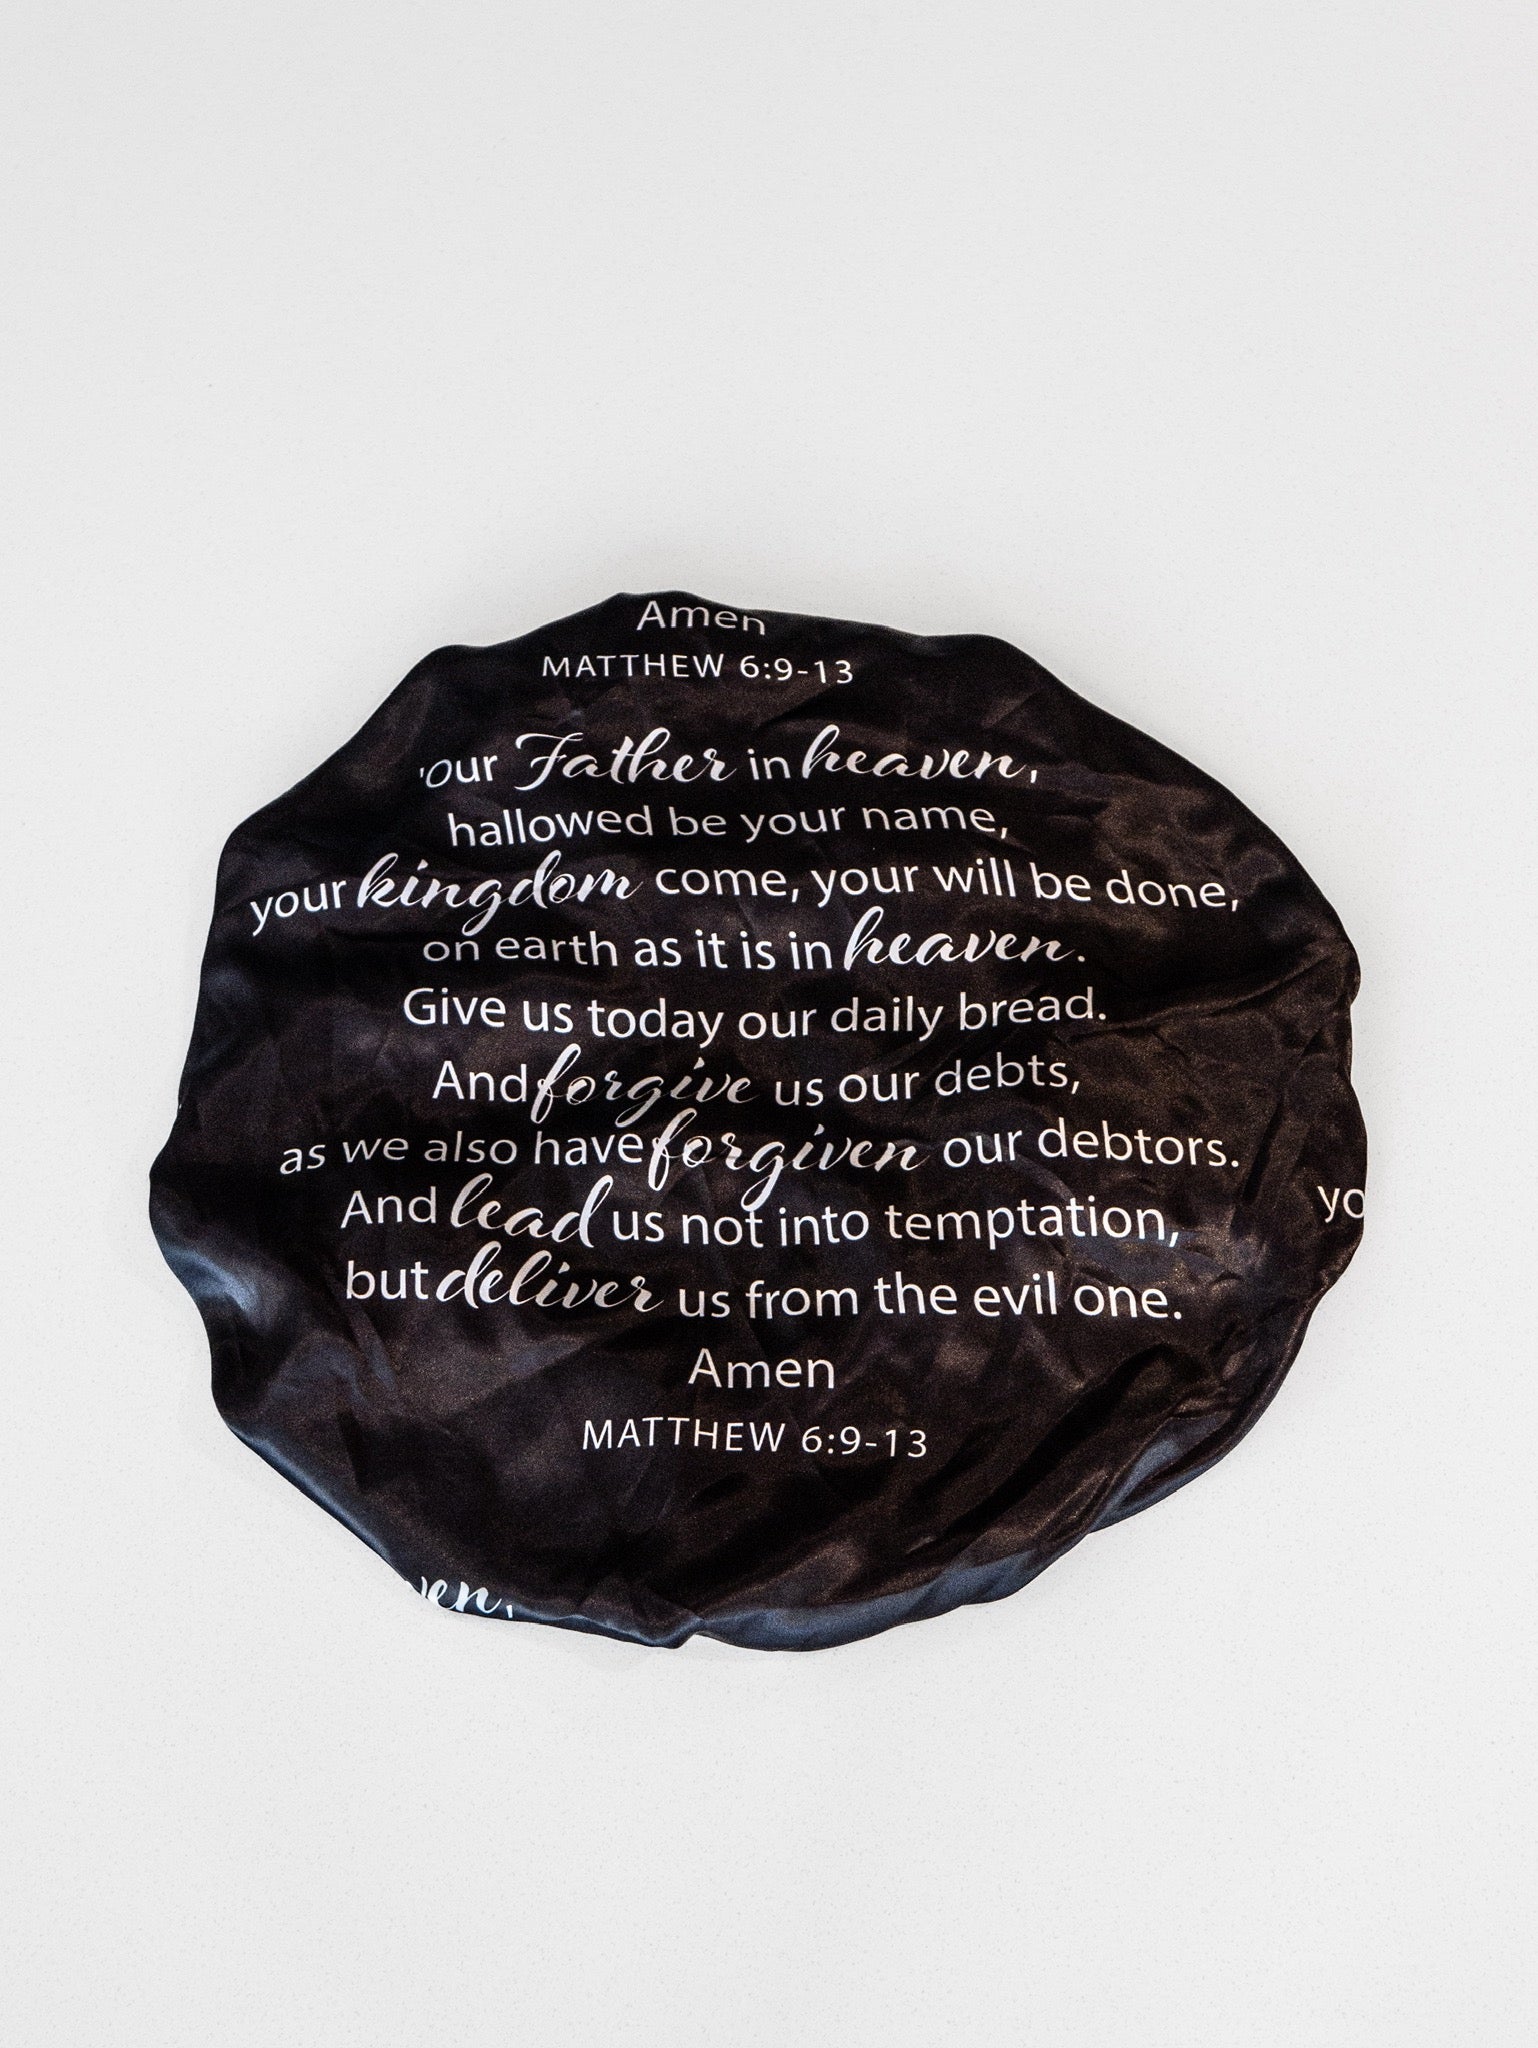 Amen
MATTHEW 6:9-13
'our Father in heaven,
hallowed be your name,
your kingdom come, your will be done,
on earth as it is in heaven.
Give us today our daily bread.
And forgive us our debts,
as we also have forgiven our debtors.
And lead us not into temptation,
yo
but deliver us from the evil one.
Amen
MATTHEW 6:9-13
ven,